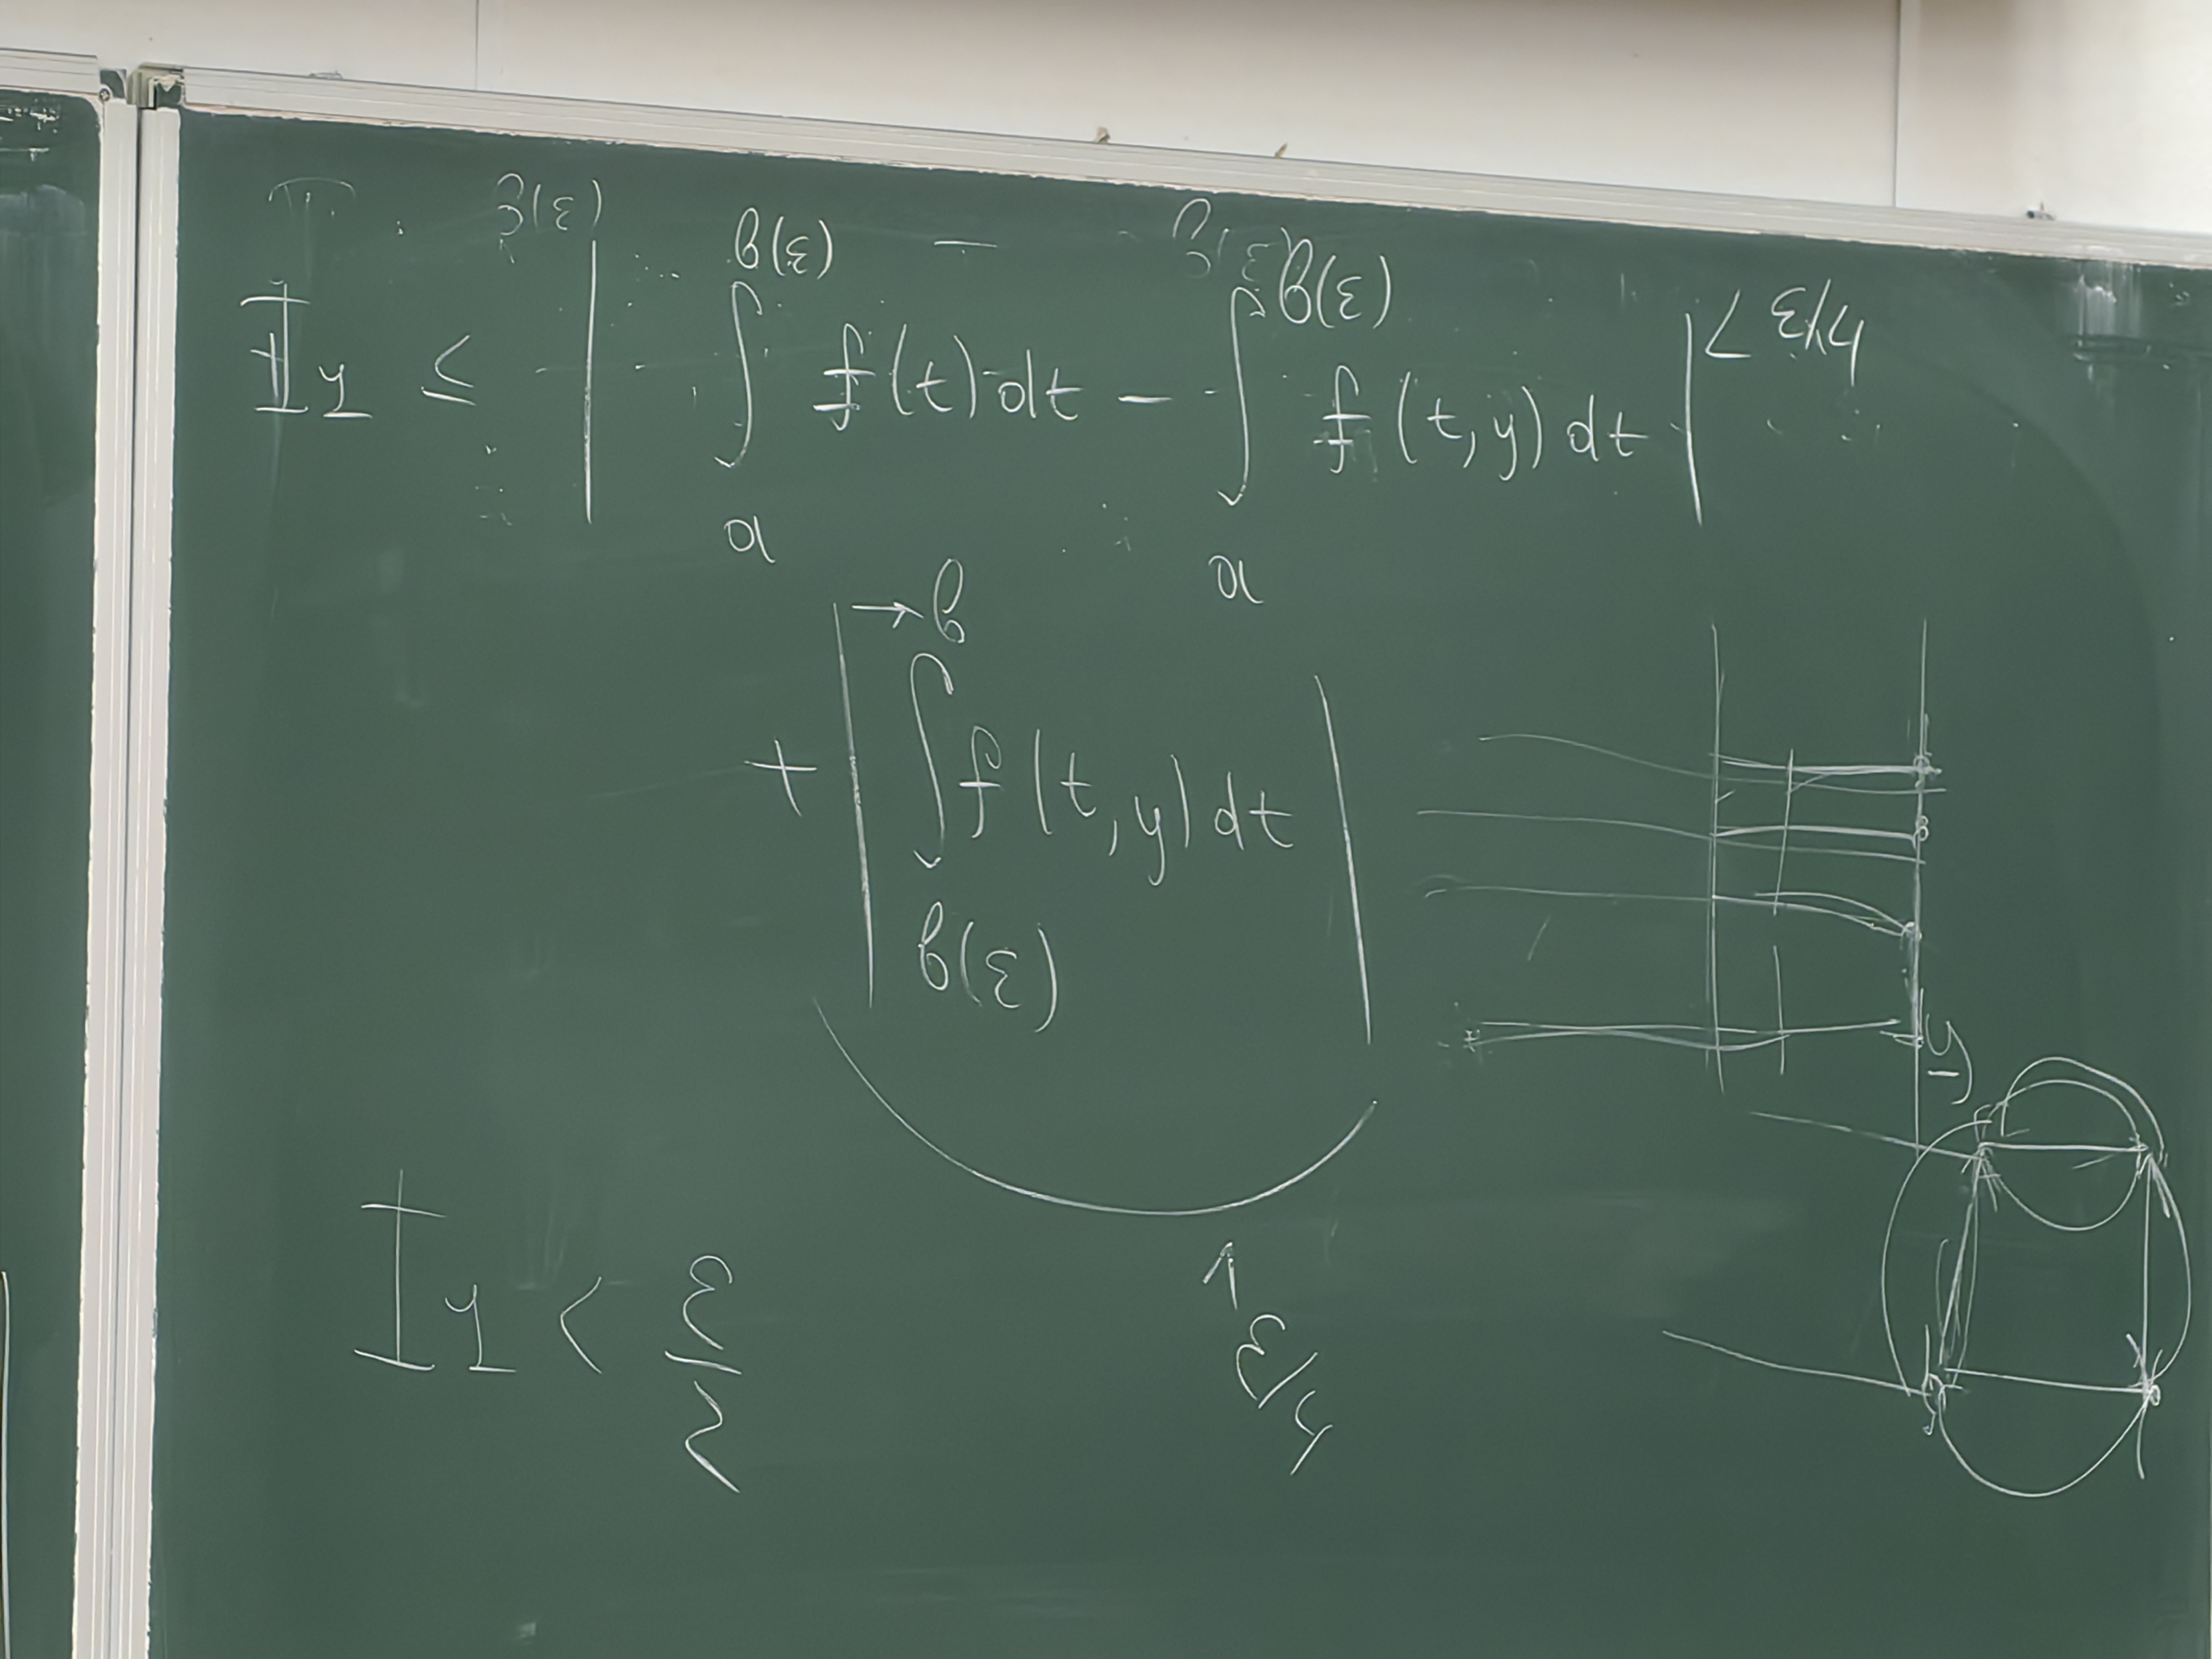 I_y ≤ | ∫_a^{b(ε)} f(t)dt − ∫_a^{b(ε)} f(t,y)dt | < ε/4
+ | ∫_{b(ε)}^{→b} f(t,y)dt |
∧ ε/4
I_y < ε/2